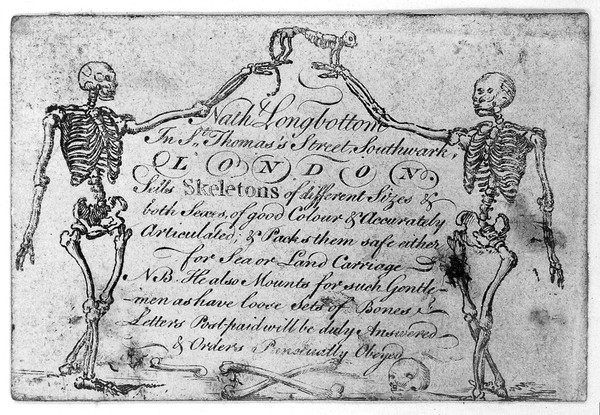 Nath.l Longbottom
In St. Thomas's Street, Southwark,
LONDON
Sells Skeletons of different Sizes &
both Sexes, of good Colour & Accurately
Articulated, & Packs them safe either
for Sea or Land Carriage
NB. He also Mounts for such Gentle-
men as have loose Sets of Bones
Letters Post-paid will be duly Answered
& Orders Punctually Obeyed